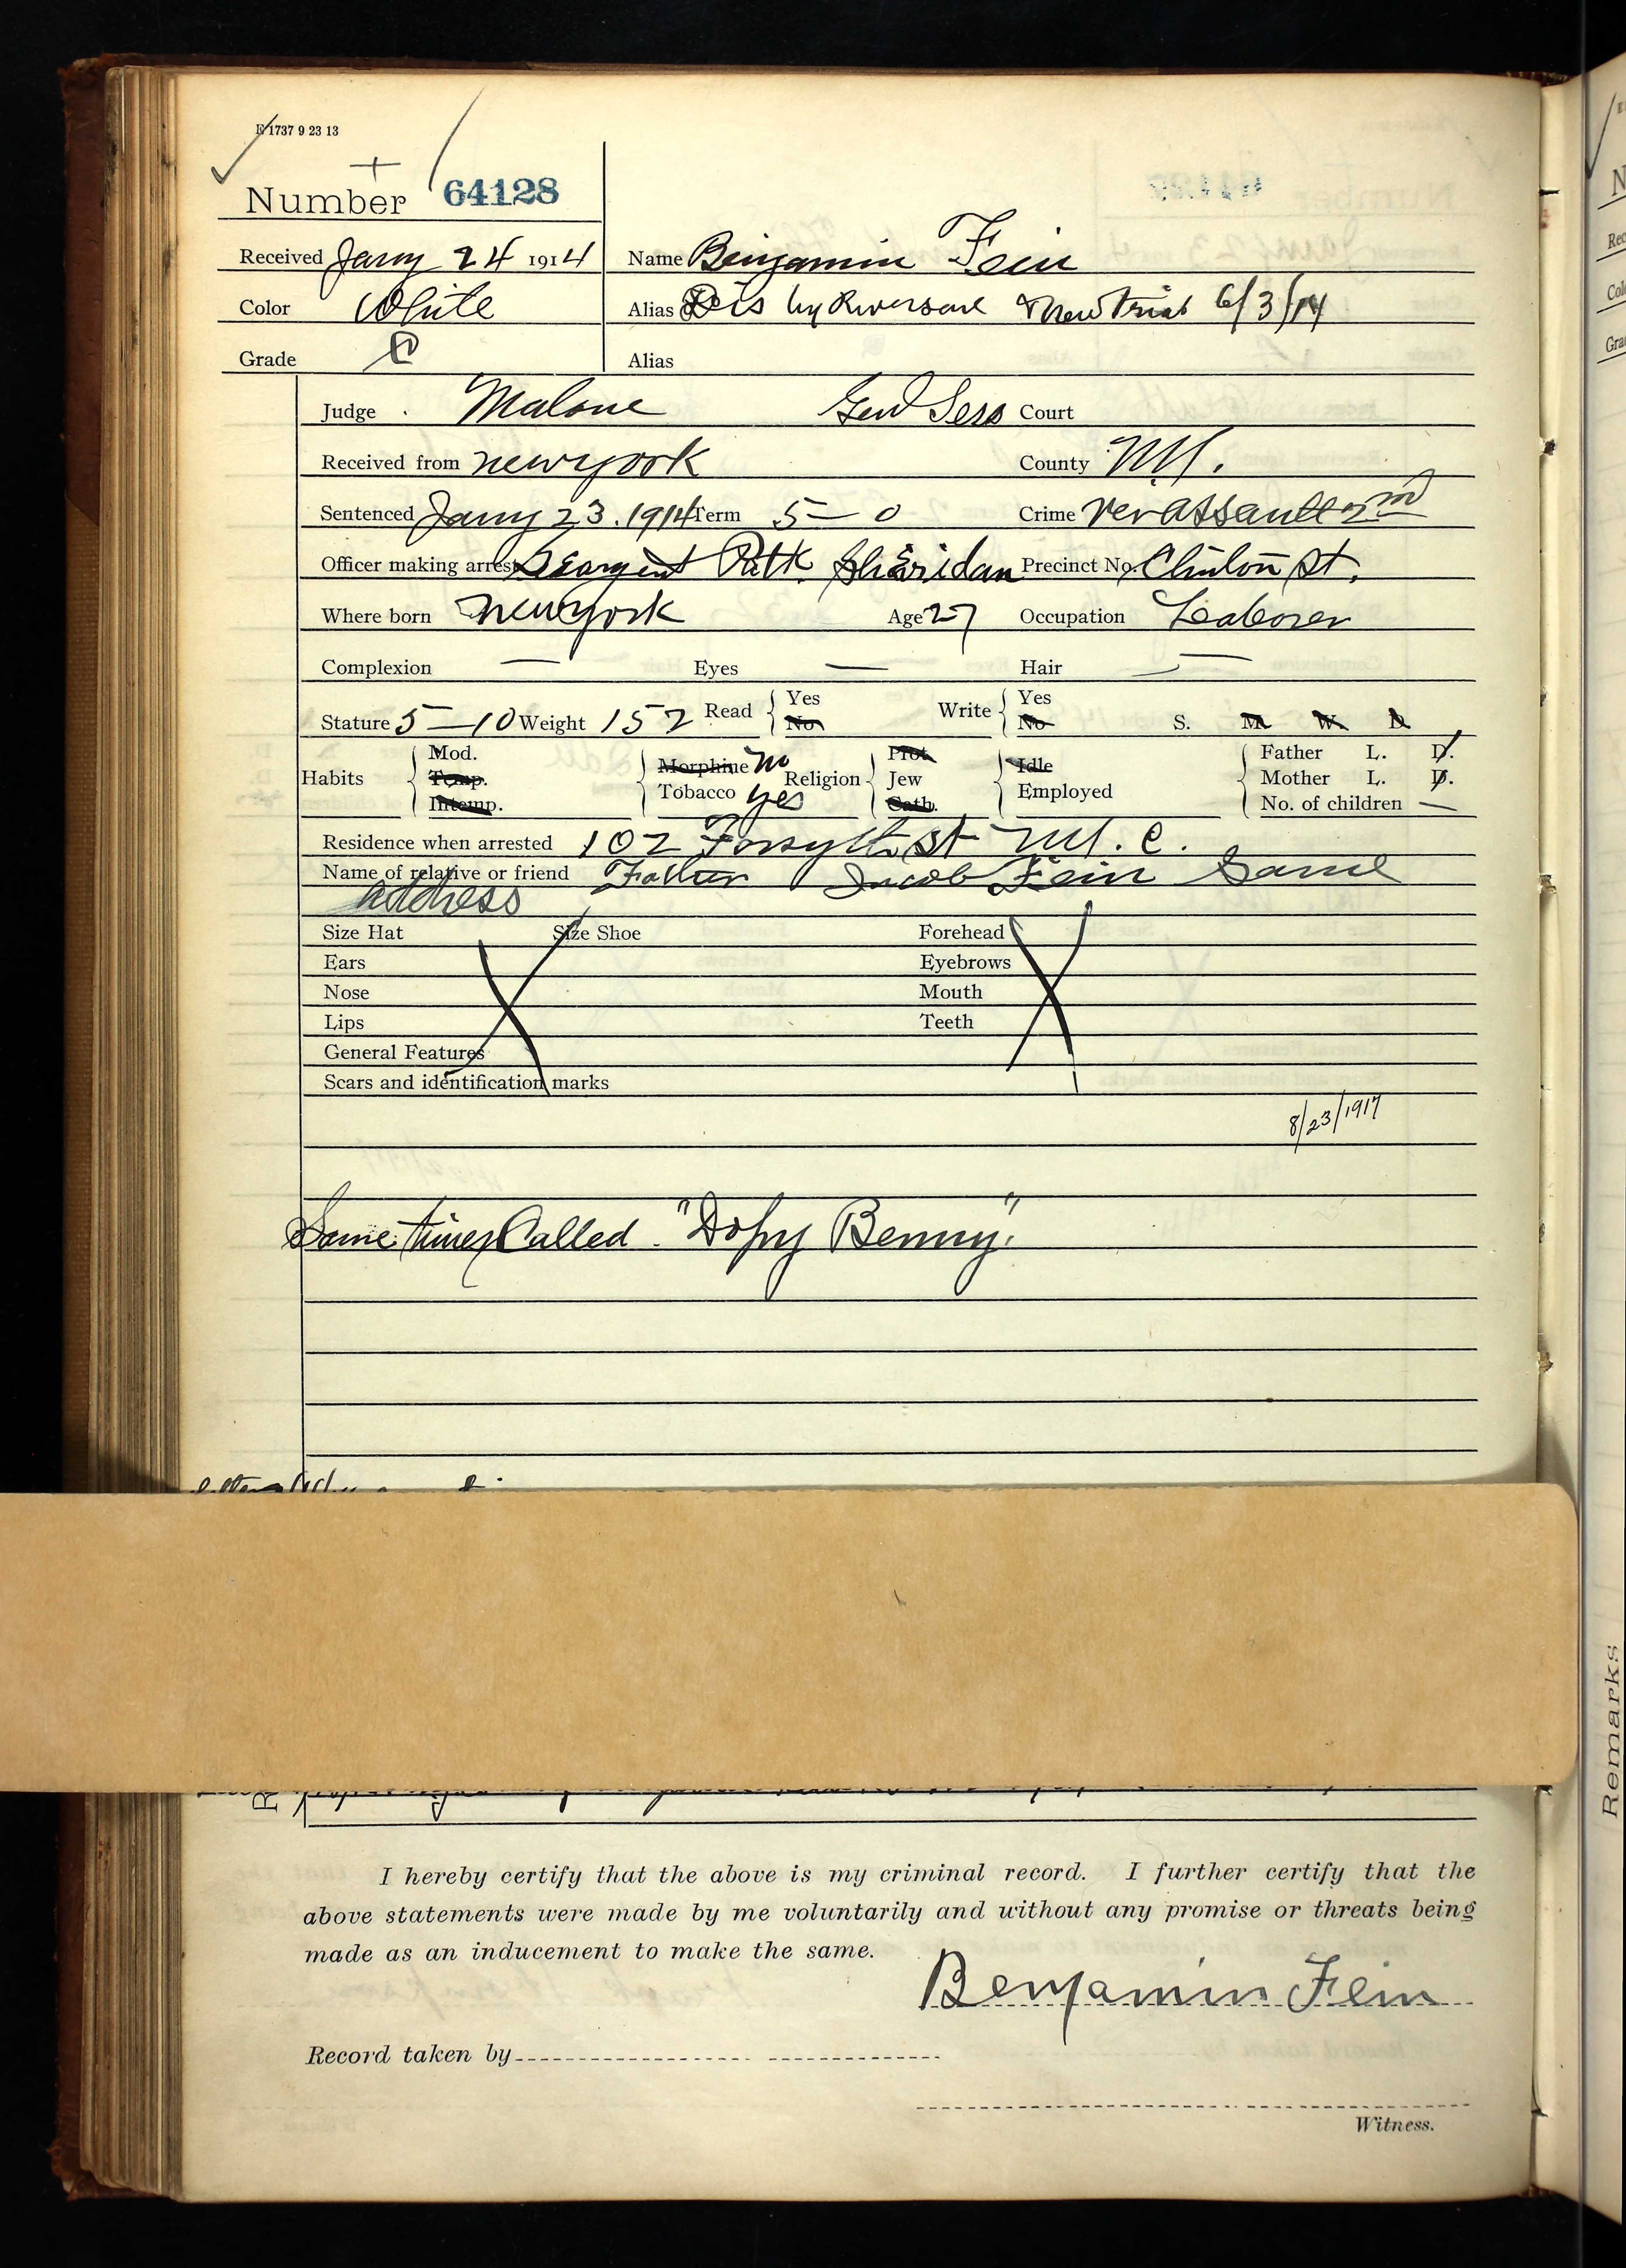 E 1737 9 23 13
Number 64128
Received Jany 24 1914 Name Benjamin Fein
Color White Alias Dis by Reversal & New Trial 6/3/14
Grade Alias
Judge Malone Genl Sess Court
Received from New York County N.Y.
Sentenced Jany 23. 1914 Term 5-0 Crime assault 2nd
Officer making arrest Seargent Patk Sheridan Precinct No. Clinton St.
Where born New York Age 27 Occupation Laborer
Complexion — Eyes — Hair —
Stature 5-10 Weight 152 Read { Yes No Write { Yes No S. M. W. D.
Habits { Mod. Temp. Intemp. { Morphine no Tobacco yes Religion { Prot. Jew Cath. { Idle Employed { Father L. D. Mother L. D. No. of children —
Residence when arrested 102 Forsyth St N.Y.C.
Name of relative or friend Father Jacob Fein Same
address
Size Hat Size Shoe Forehead
Ears Eyebrows
Nose Mouth
Lips Teeth
General Features
Scars and identification marks
8/23/1917
Some times Called "Dopy Benny"
I hereby certify that the above is my criminal record. I further certify that the
above statements were made by me voluntarily and without any promise or threats being
made as an inducement to make the same.
Benjamin Fein
Record taken by
Witness.
Remarks